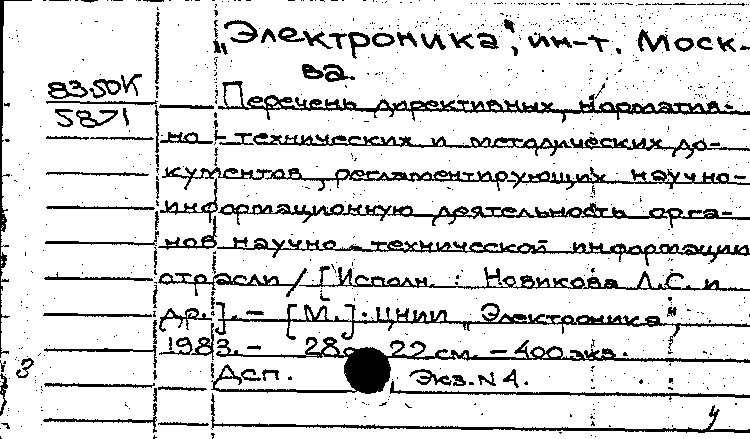 „Электроника", ин-т. Моск-
ва.
83.50К
5871
Перечень директивных, норматив-
но-технических и методических до-
кументов, регламентирующих научно-
информационную деятельность орга-
нов научно-технической информации
отрасли / [Исполн. : Новикова Л.С. и
др.]. - [М.] : ЦНИИ „Электроника",
1983. - 28с. 22 см. - 400 экз.
3
Дсп. Экз. N 4.
у